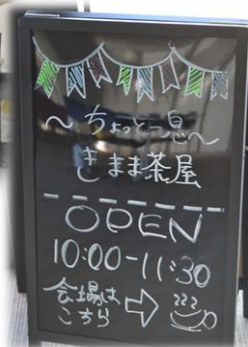 ～ちょっと一息～
きまま茶屋
OPEN
10:00-11:30
会場は
こちら